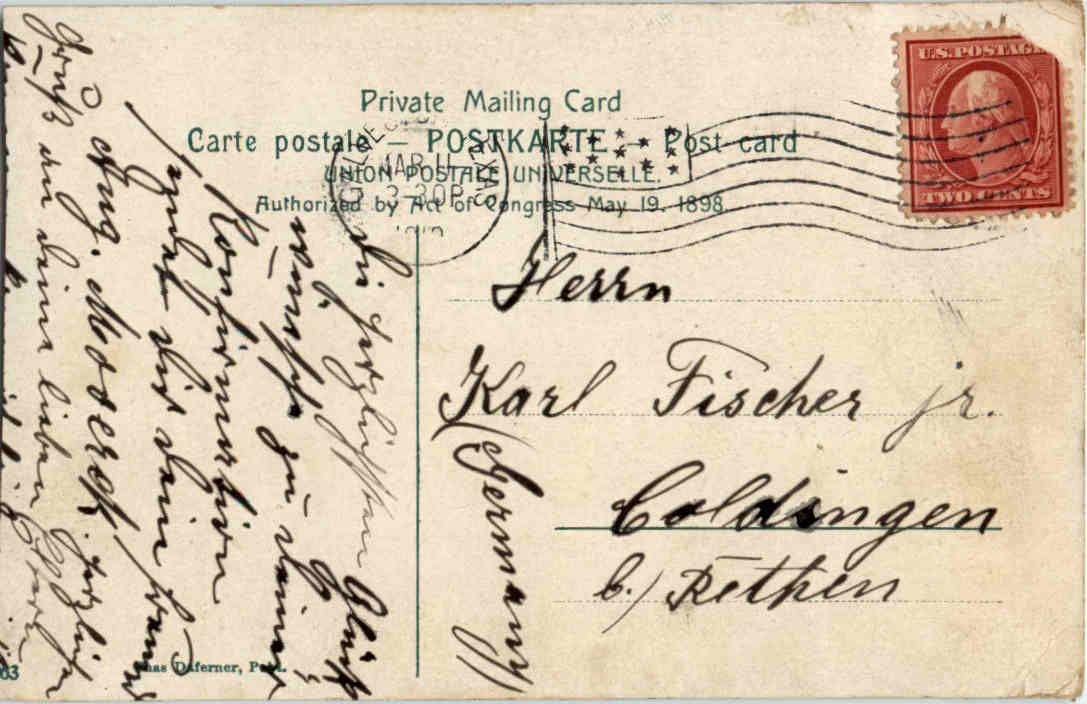 Private Mailing Card
Carte postale – POSTKARTE – Post card
UNION POSTALE UNIVERSELLE.
Authorized by Act of Congress May 19. 1898.
MAR 11
3-30P
U.S. POSTAGE
TWO CENTS
Herrn
Karl Fischer jr.
Coldingen
b./ Rethen
Germany
Die herzlichsten Glück
wünsche zu deiner
Konfirmation
sendet dir dein Freund
Aug. Moderok. herzliche
Grüße an deine lieben Eltern
Chas Daferner, Pub.
63